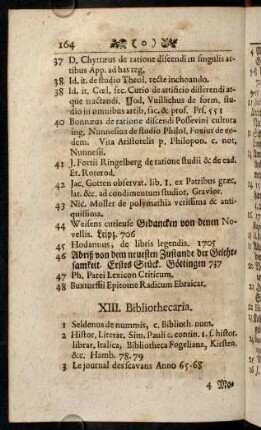 164 ( o )
37 D. Chytræus de ratione discendi in singulis ar-
tibus App. ad has reg.
38 Id. it. de studio Theol. recte inchoando.
38 Id. it. Cœl. sec. Curio de artificio differendi at-
que tractandi. Jod, Vuillichus de form. stu-
dio in omnibus artib, sac. & prof. Frf. 551
40 Bonnæus de ratione discendi Possevini cultura
ing, Nunnesius de studio Philos, Foxius de eo-
dem. Vita Aristotelis p. Philopon. c. not,
Nunnesii.
41 J. Fortii Ringelberg de ratione studii &c de ead.
Et. Roterod.
42 Jac. Gotten observat. lib. 1. ex Patribus græc,
lat. &c. ad condimentum studior, Gravior.
43 Nic. Moller de polymathia verissima & anti-
quissima.
44 Weisens curieuse Gedancken von denen No-
vellis. Leipz. 706
45 Hodannus, de libris legendis. 1705
46 Abriß von dem neuesten Zustande der Gelehr-
samkeit. Erstes Stück. Göttingen 737
47 Ph. Parei Lexicon Criticum,
48 Buxtorffii Epitome Radicum Ebraicar.
XIII. Bibliothecaria.
1 Seldenus de nummis, c. Biblioth. num.
2 Histor, Literar. Sim. Pauli c. contin. 1. s. histor.
librar, Italica, Bibliotheca Fogeliana, Kirsten.
&c. Hamb. 78. 79
3 Le journal des scavans Anno 65-68
4 Mo-